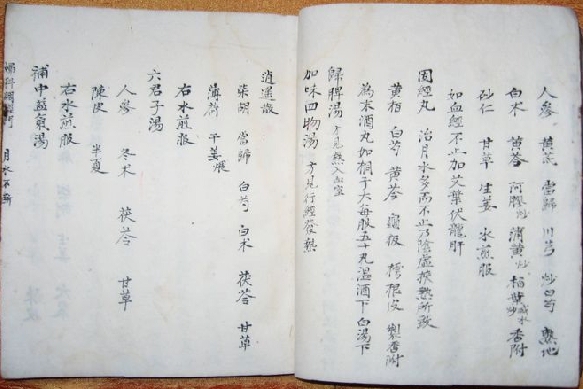 人參 黄芪 當歸 川芎 炒白芍 熟地
白朮 黄芩 阿膠炒 蒲黄炒 柏葉 香附
砂仁 甘草 生姜 水煎服
如血經不止加艾葉伏龍肝
固經丸 治月水多而不止乃陰虚挾熱所致
黄栢 白芍 黄芩 龜板 樗根皮 製香附
為末酒丸如梧子大每服五十丸温酒下白湯下
歸脾湯 方見熱入血室
加味四物湯 方見行經發熱
逍遥散
柴胡 當歸 白芍 白术 茯苓 甘草
薄荷 干姜煨
右水煎服
六君子湯
人參 冬术 茯苓 甘草
陳皮 半夏
右水煎服
補中益氣湯
月水不断